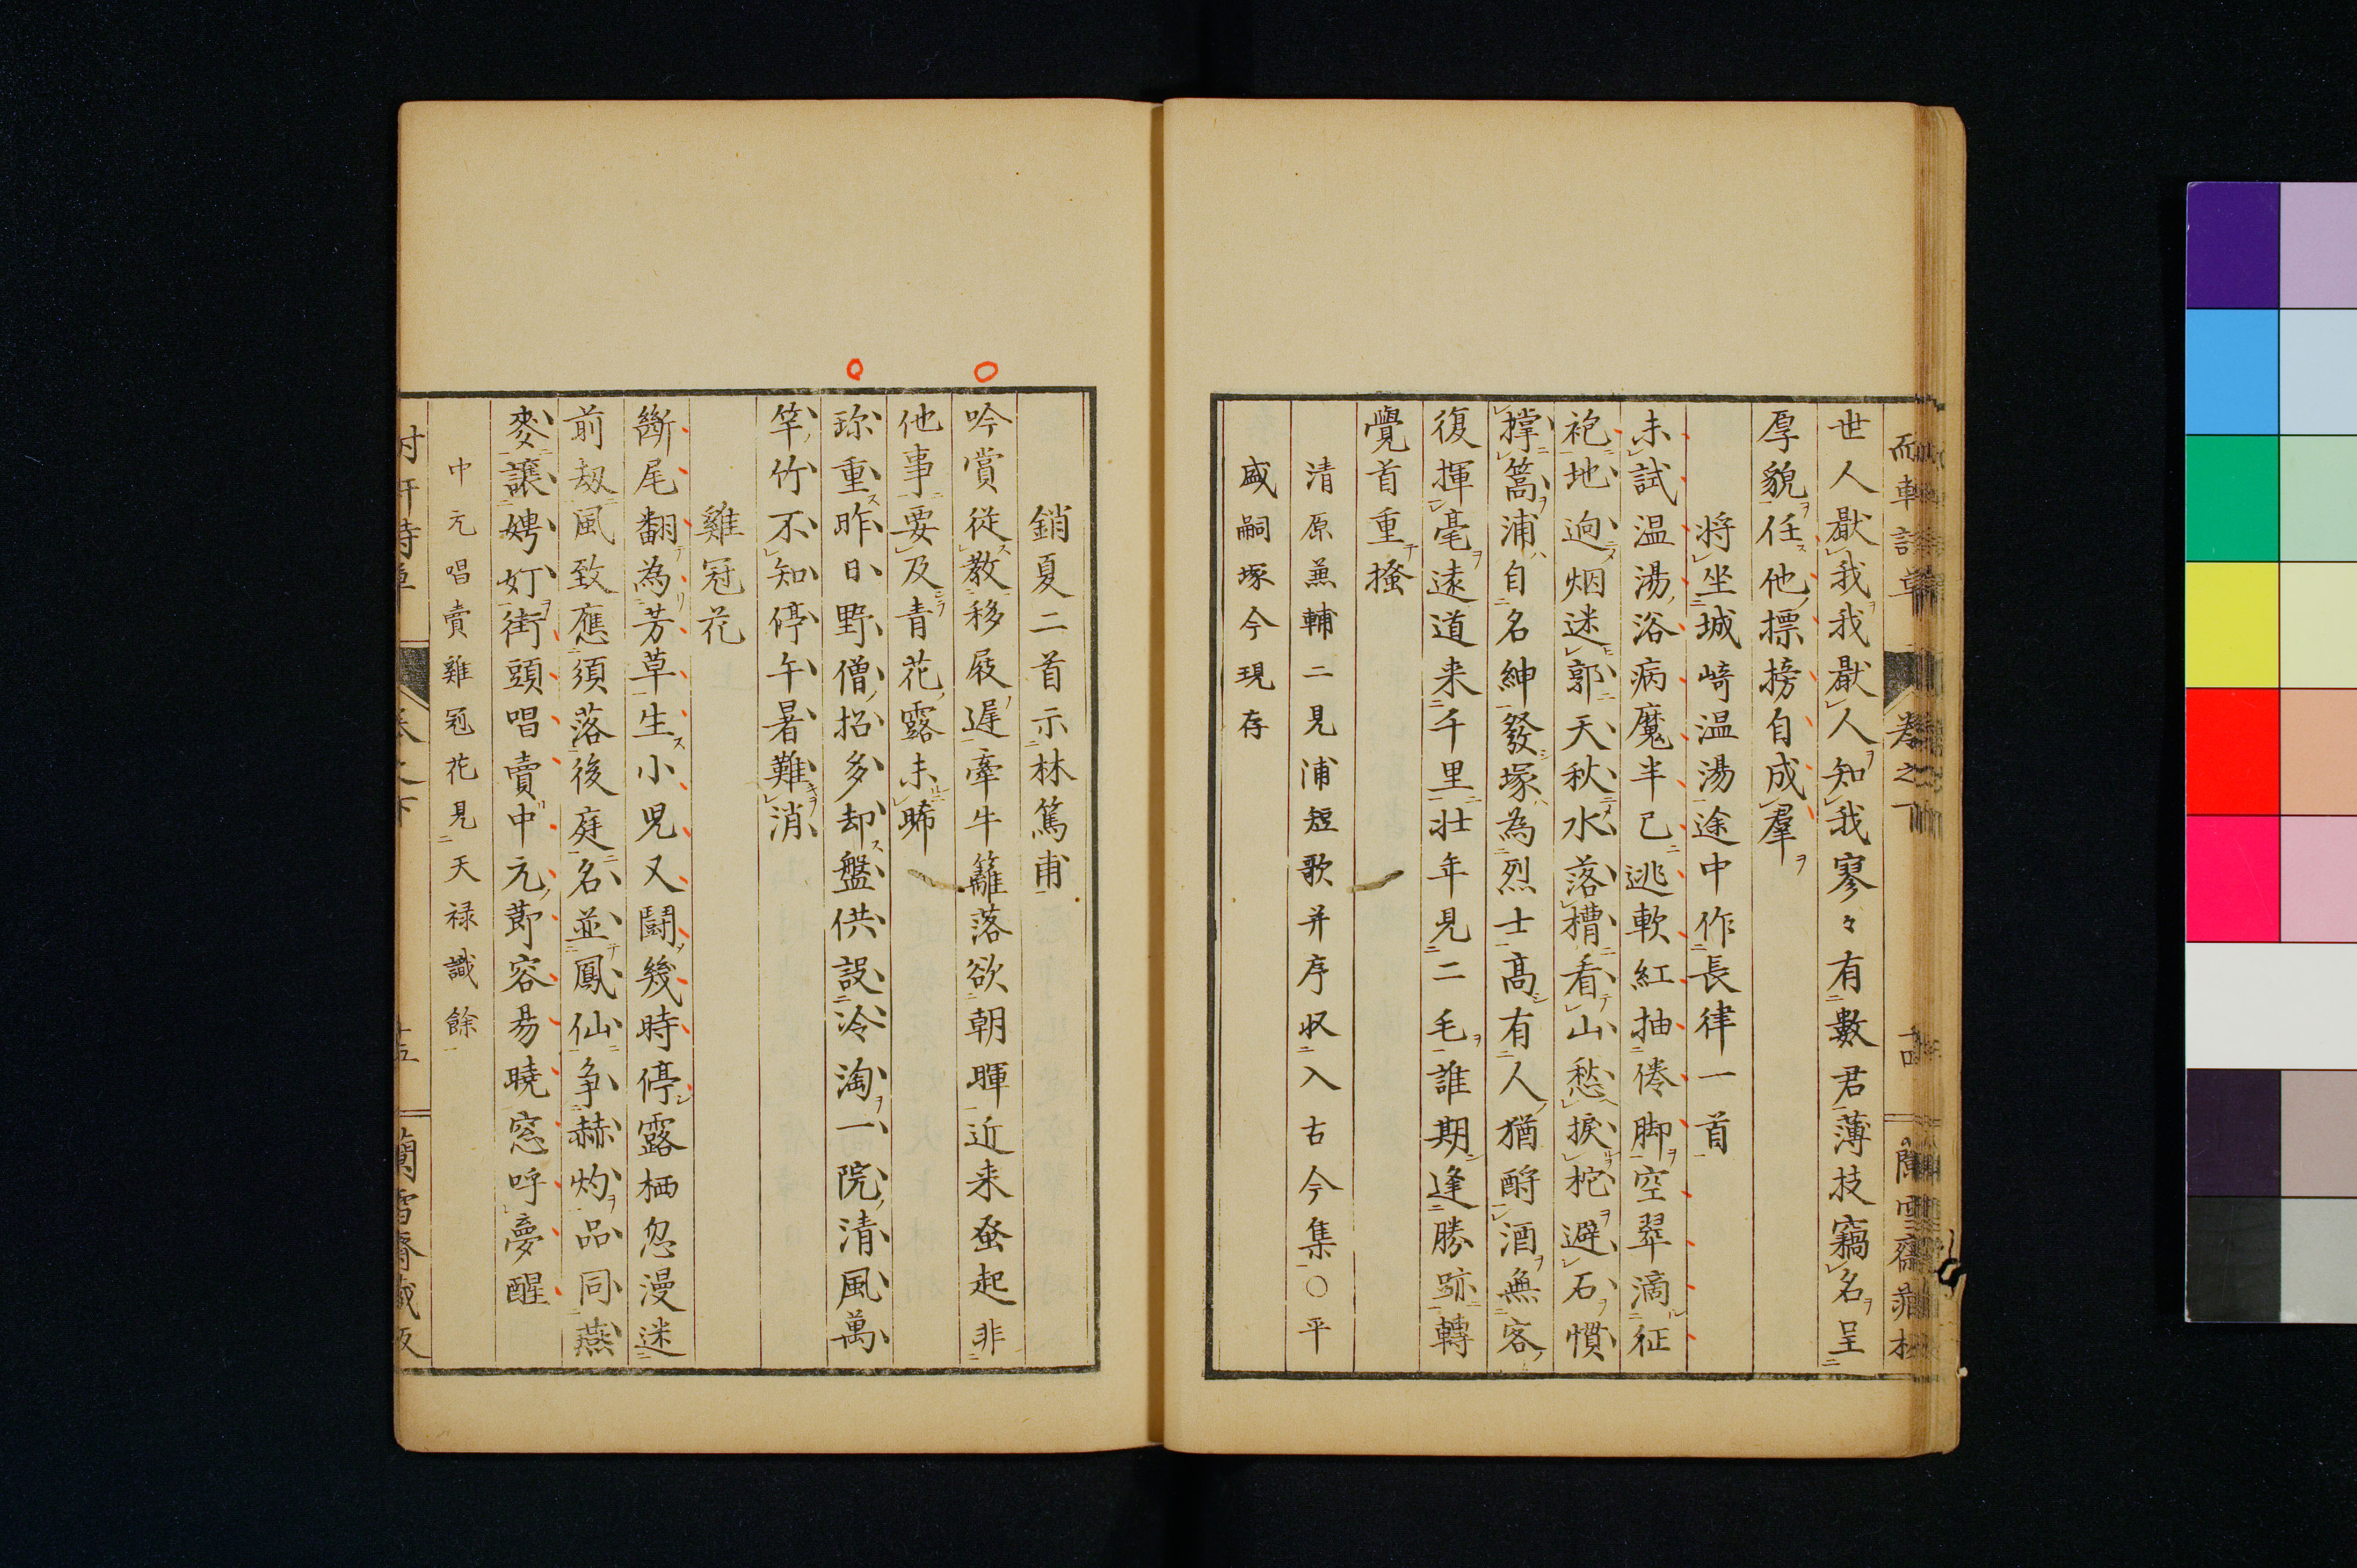 世人厭我我厭人知我寥々有數君薄技竊名呈
厚貌任他標榜自成羣
将坐城崎温湯途中作長律一首
未試温湯浴病魔半已逃軟紅抽倦脚空翠滴征
袍地逈烟迷郭天秋水落槽看山愁捩柁避石慣
撑篙浦自名紳發塚為烈士髙有人猶酹酒無客
復揮毫遠道来千里壮年見二毛誰期逢勝跡轉
覺首重搔
清原兼輔二見浦短歌并序収入古今集○平
盛嗣塚今現存
卷之下
銷夏二首示林篤甫
吟賞從教移屐遲牽牛籬落欲朝暉近来蚤起非
他事要及青花露未晞
珎重昨日野僧招多却盤供設冷淘一院清風萬
竿竹不知停午暑難消
雞冠花
斷尾翻為芳草生小児又鬪幾時停露栖忽漫迷
前刼風致應須落後庭名並鳳仙争赫灼品同燕
麥讓娉婷街頭唱賣中元莭容易曉窓呼夢醒
中元唱賣雞冠花見天禄識餘